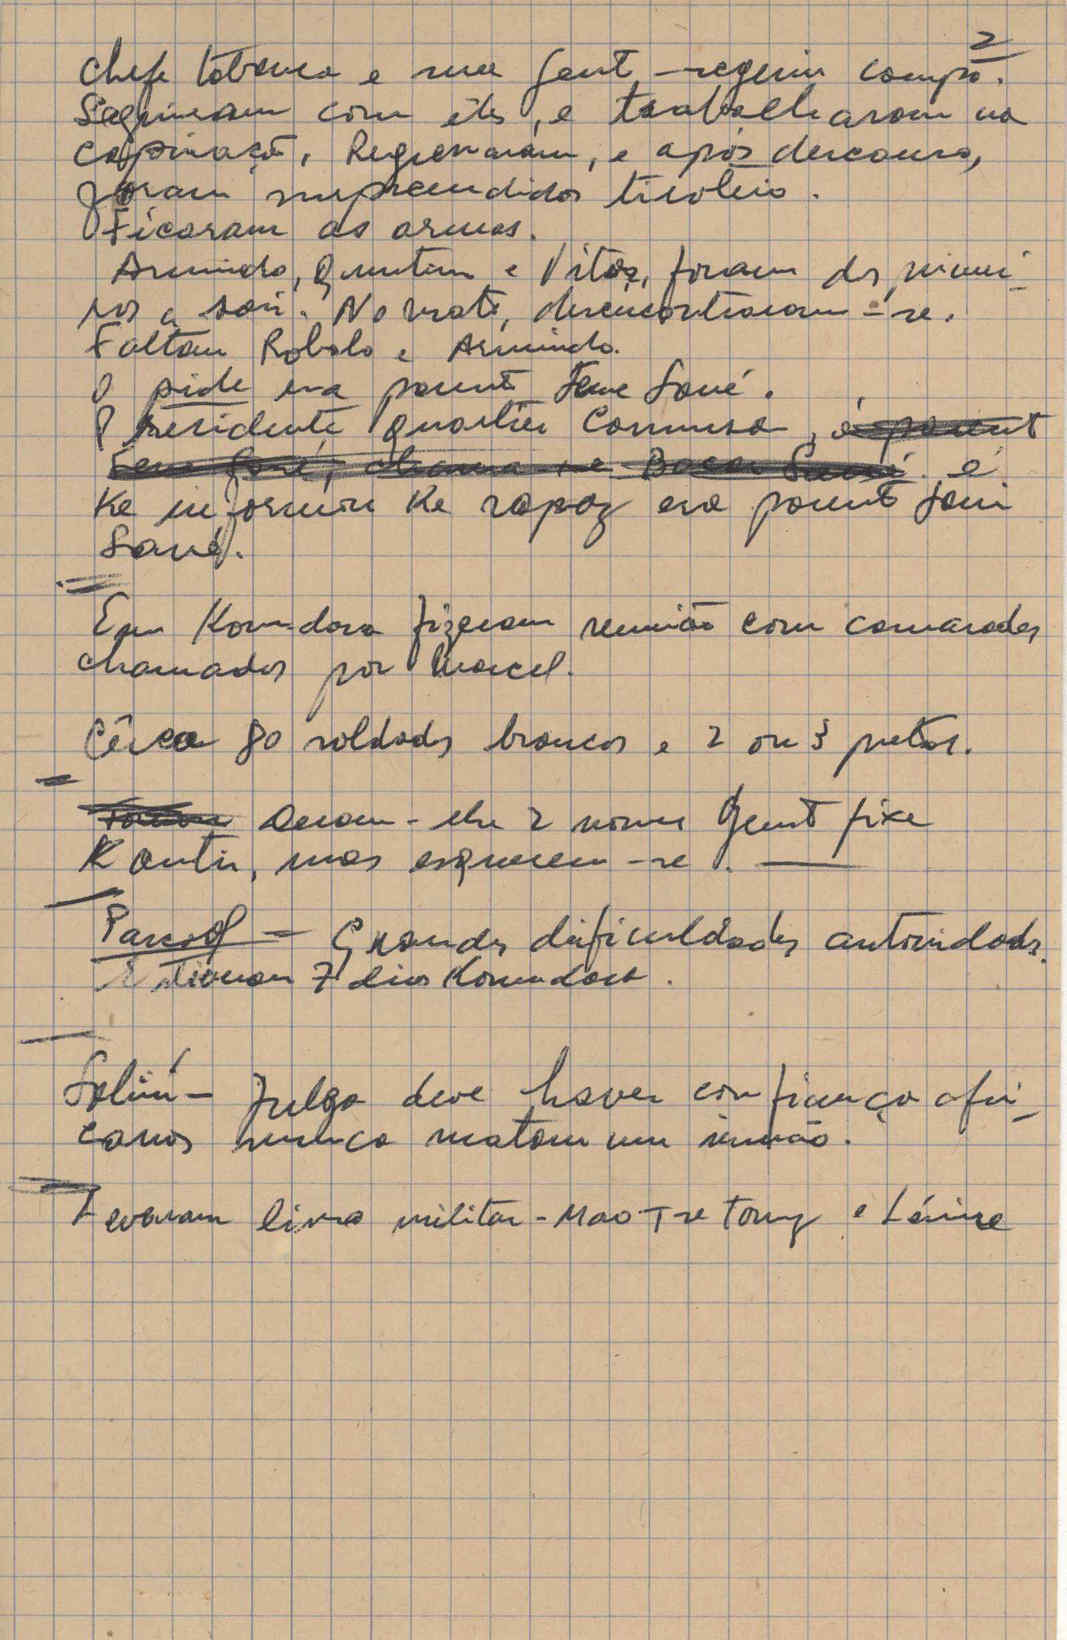 2
Chefe tabanca e sua gent, - seguiu campo.
Seguiram com êles, e trabalharam na
capinação. Regressaram, e após descanso,
foram surpreendidos tiroteio.
Ficaram as armas.
Armindo, Quintim e Vitor, foram os primei-
ros a sair. No mato, desencontraram-se.
Faltam Robalo e Armindo.
O pide era parent
Presidente Quartier é parent
é
Ke informou Ke rapaz era parent
Sané.
Em Komdara fizeram reunião com camaradas
chamados por Marcel.
Cêrca 80 soldados brancos e 2 ou 3 pretos.
Deram-lhe 2 nomes gent fixe
Kontu, mas esquecem-se.
Grandes dificuldades autoridads.
Estiveram 7 dias Komdara.
Julga deve haver confiança afri-
canos nunca matam um irmão.
Levaram livro militar - Mao Tse Tung e Lénine